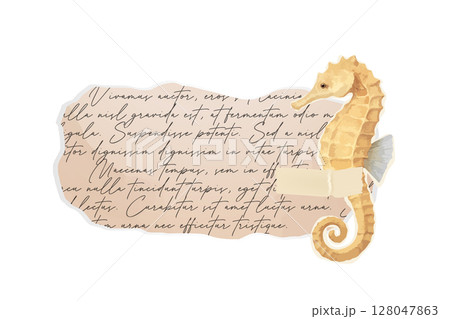 Vivamus auctor, eros
nisl gravida est, at fermentum odio m
gula. Suspendisse potenti. Sed a nisl
tor dignissim dignissim in vitae turpis
Maecenas tempus, sem in effi
nulla tincidunt turpis, eget di
lectus. Curabitur sit amet luctus urna.
m urna nec efficitur tristique.
128047863